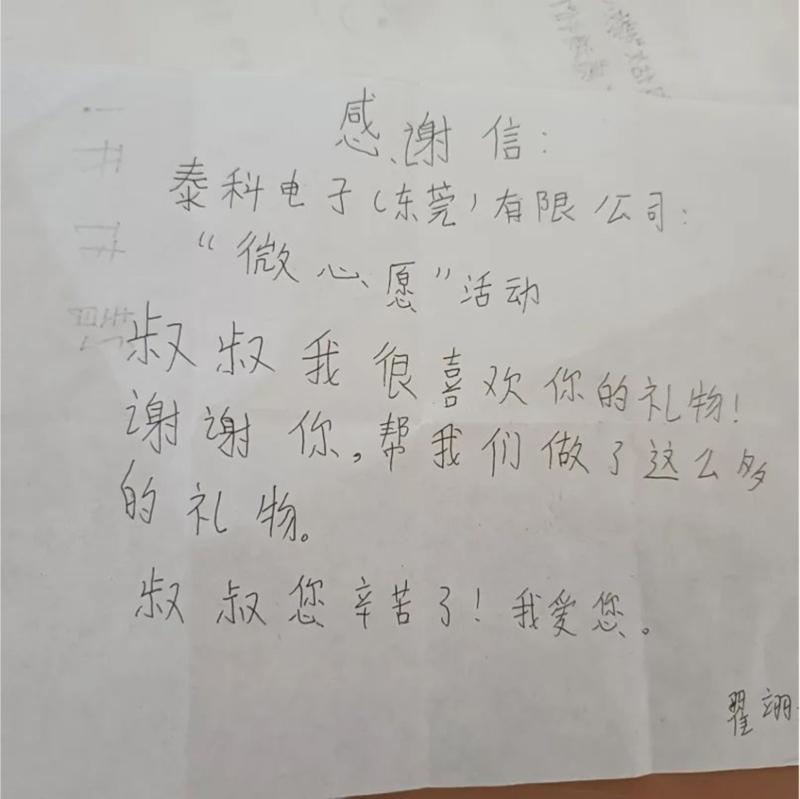 感谢信：
泰科电子（东莞）有限公司：
“微心愿”活动
叔叔我很喜欢你的礼物！
谢谢你，帮我们做了这么多
的礼物。
叔叔您辛苦了！我爱您。
翟翊